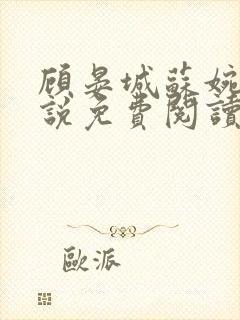 顾晏城蘇婉
說免費閱讀
歐派